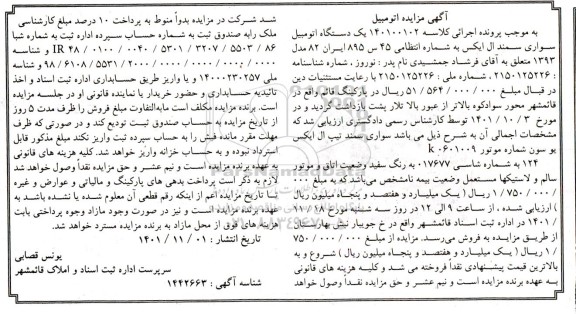 آگهی مزایده اتومبیل
به موجب پرونده اجرائی کلاسه ۱۴۰۱۰۰۱۰۲ یک دستگاه اتومبیل
سواری سمند ال ایکس به شماره انتظامی ۴۵ س ۸۹۵ ایران ۸۲ مدل
۱۳۹۳ متعلق به آقای فرشاد جمشیدی نام پدر : نوروز ، شماره شناسنامه
۲۱۵۰۱۲۵۲۲۶ ، شماره ملی : ۲۱۵۰۱۲۵۲۲۶ با رعایت مستثنیات دین
در قبال مبلغ ۰۰۰ / ۵۶۴ / ۵۱ ریال در پارکینگ قائم واقع در
قائمشهر محور سوادکوه بالاتر از عبور بالا تلار پشت بازداشت گردید و در
مورخ ۳ / ۱۰ / ۱۴۰۱ توسط کارشناس رسمی دادگستری ارزیابی شد که
مشخصات اجمالی آن به شرح ذیل می باشد سواری سمند تیپ ال ایکس
یو سون شماره موتور k ۰۶۰۱۰۰۹
۱۲۴ به شماره شاسی ۰۱۷۶۷۷ به رنگ سفید وضعیت اتاق و موتور
سالم و لاستیکها مستعمل وضعیت بیمه نامشخص می‌باشد که به مبلغ ۰۰۰
/ ۷۵۰/۰۰۰ / ۱ ریال ( یک میلیارد و هفتصد و پنجاه میلیون ریال
) ارزیابی شده ، از ساعت ۹ الی ۱۲ در روز سه شنبه مورخ ۱۸ / ۱۱ /
۱۴۰۱ در اداره ثبت اسناد قائمشهر واقع در خ جویبار نبش بهارستان
از طریق مزایده به فروش می‌رسد. مزایده از مبلغ ۰۰۰ / ۷۵۰/۰۰۰
/ ۱ ریال ( یک میلیارد و هفتصد و پنجاه میلیون ریال ) شروع و به
بالاترین قیمت پیشنهادی نقداً فروخته می شد و کلیه هزینه های قانونی
به عهده برنده مزایده است و نیم عشر و حق مزایده نقداً وصول خواهد
شد شرکت در مزایده بدواً منوط به پرداخت ۱۰ درصد مبلغ کارشناسی
ملک رابه صندوق ثبت به شماره حساب سپرده اداره ثبت به شماره شبا
۸۶ / ۵۵۰۳ / ۳۲۰۷ / ۵۳۰۱ / ۰۰۴۰ / ۰۱۰۰ / ۴۸ IR و شناسه
۰۰۰۰ / ۰۰۰۰ / ۰۰۰۰ / ۲۰۰۰ / ۵۵۳۱ / ۶۱۰۸ / ۹۸ و شناسه
ملی ۱۴۰۰۰۲۳۰۲۵۷ و یا واریز طریق حسابداری اداره ثبت اسناد و اخذ
تائیدیه حسابداری و حضور خریدار یا نماینده قانونی او در جلسه مزایده
است. برنده مزایده مکلف است مابه‌التفاوت مبلغ فروش را ظرف مدت ۵ روز
از تاریخ مزایده به حساب صندوق ثبت تودیع کند و در صورتی که ظرف
مهلت مقرر مانده فیش را به حساب سپرده ثبت واریز نکند مبلغ مذکور قابل
استرداد نبوده و به حساب خزانه واریز خواهد شد. کلیه هزینه های قانونی
به عهده برنده مزایده است و نیم عشر و حق مزایده نقداً وصول خواهد شد
لازم به ذکر است پرداخت بدهی های پارکینگ و مالیاتی و عوارض و غیره
تا تاریخ مزایده اعم از اینکه رقم قطعی آن معلوم شده یا نشده باشد به
عهده برنده مزایده است و نیز در صورت وجود مازاد وجوه پرداختی بابت
هزینه های فوق از محل مازاد به برنده مزایده مسترد خواهد شد.
تاریخ انتشار : ۰۱ / ۱۱ / ۱۴۰۱
یونس قصابی
سرپرست اداره ثبت اسناد و املاک قائمشهر
شناسه آگهی : ۱۴۴۲۶۶۳